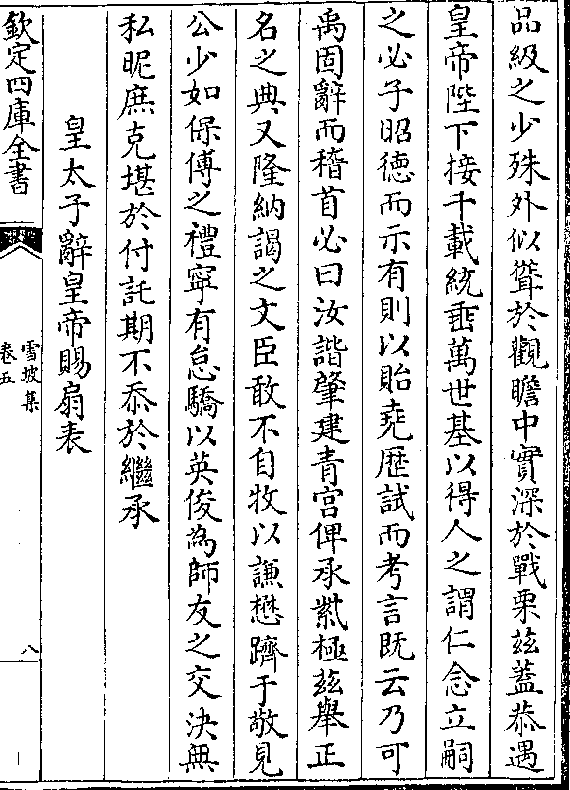 品級之少殊外似聳於觀瞻中實深於戰栗茲蓋恭遇
皇帝陛下接千載統垂萬世基以得人之謂仁念立嗣
之必子昭徳而示有則以貽堯歴試而考言既云乃可
禹固辭而稽首必曰汝諧肇建青宫俾承紫極茲舉正
名之典又隆納謁之文臣敢不自牧以謙懋躋于敬見
公少如保傅之禮寧有怠驕以英俊為師友之交決無
私昵庶克堪於付託期不忝於繼承
皇太子辭皇帝賜扇表
欽定四庫全書
雪坡集
卷五
八